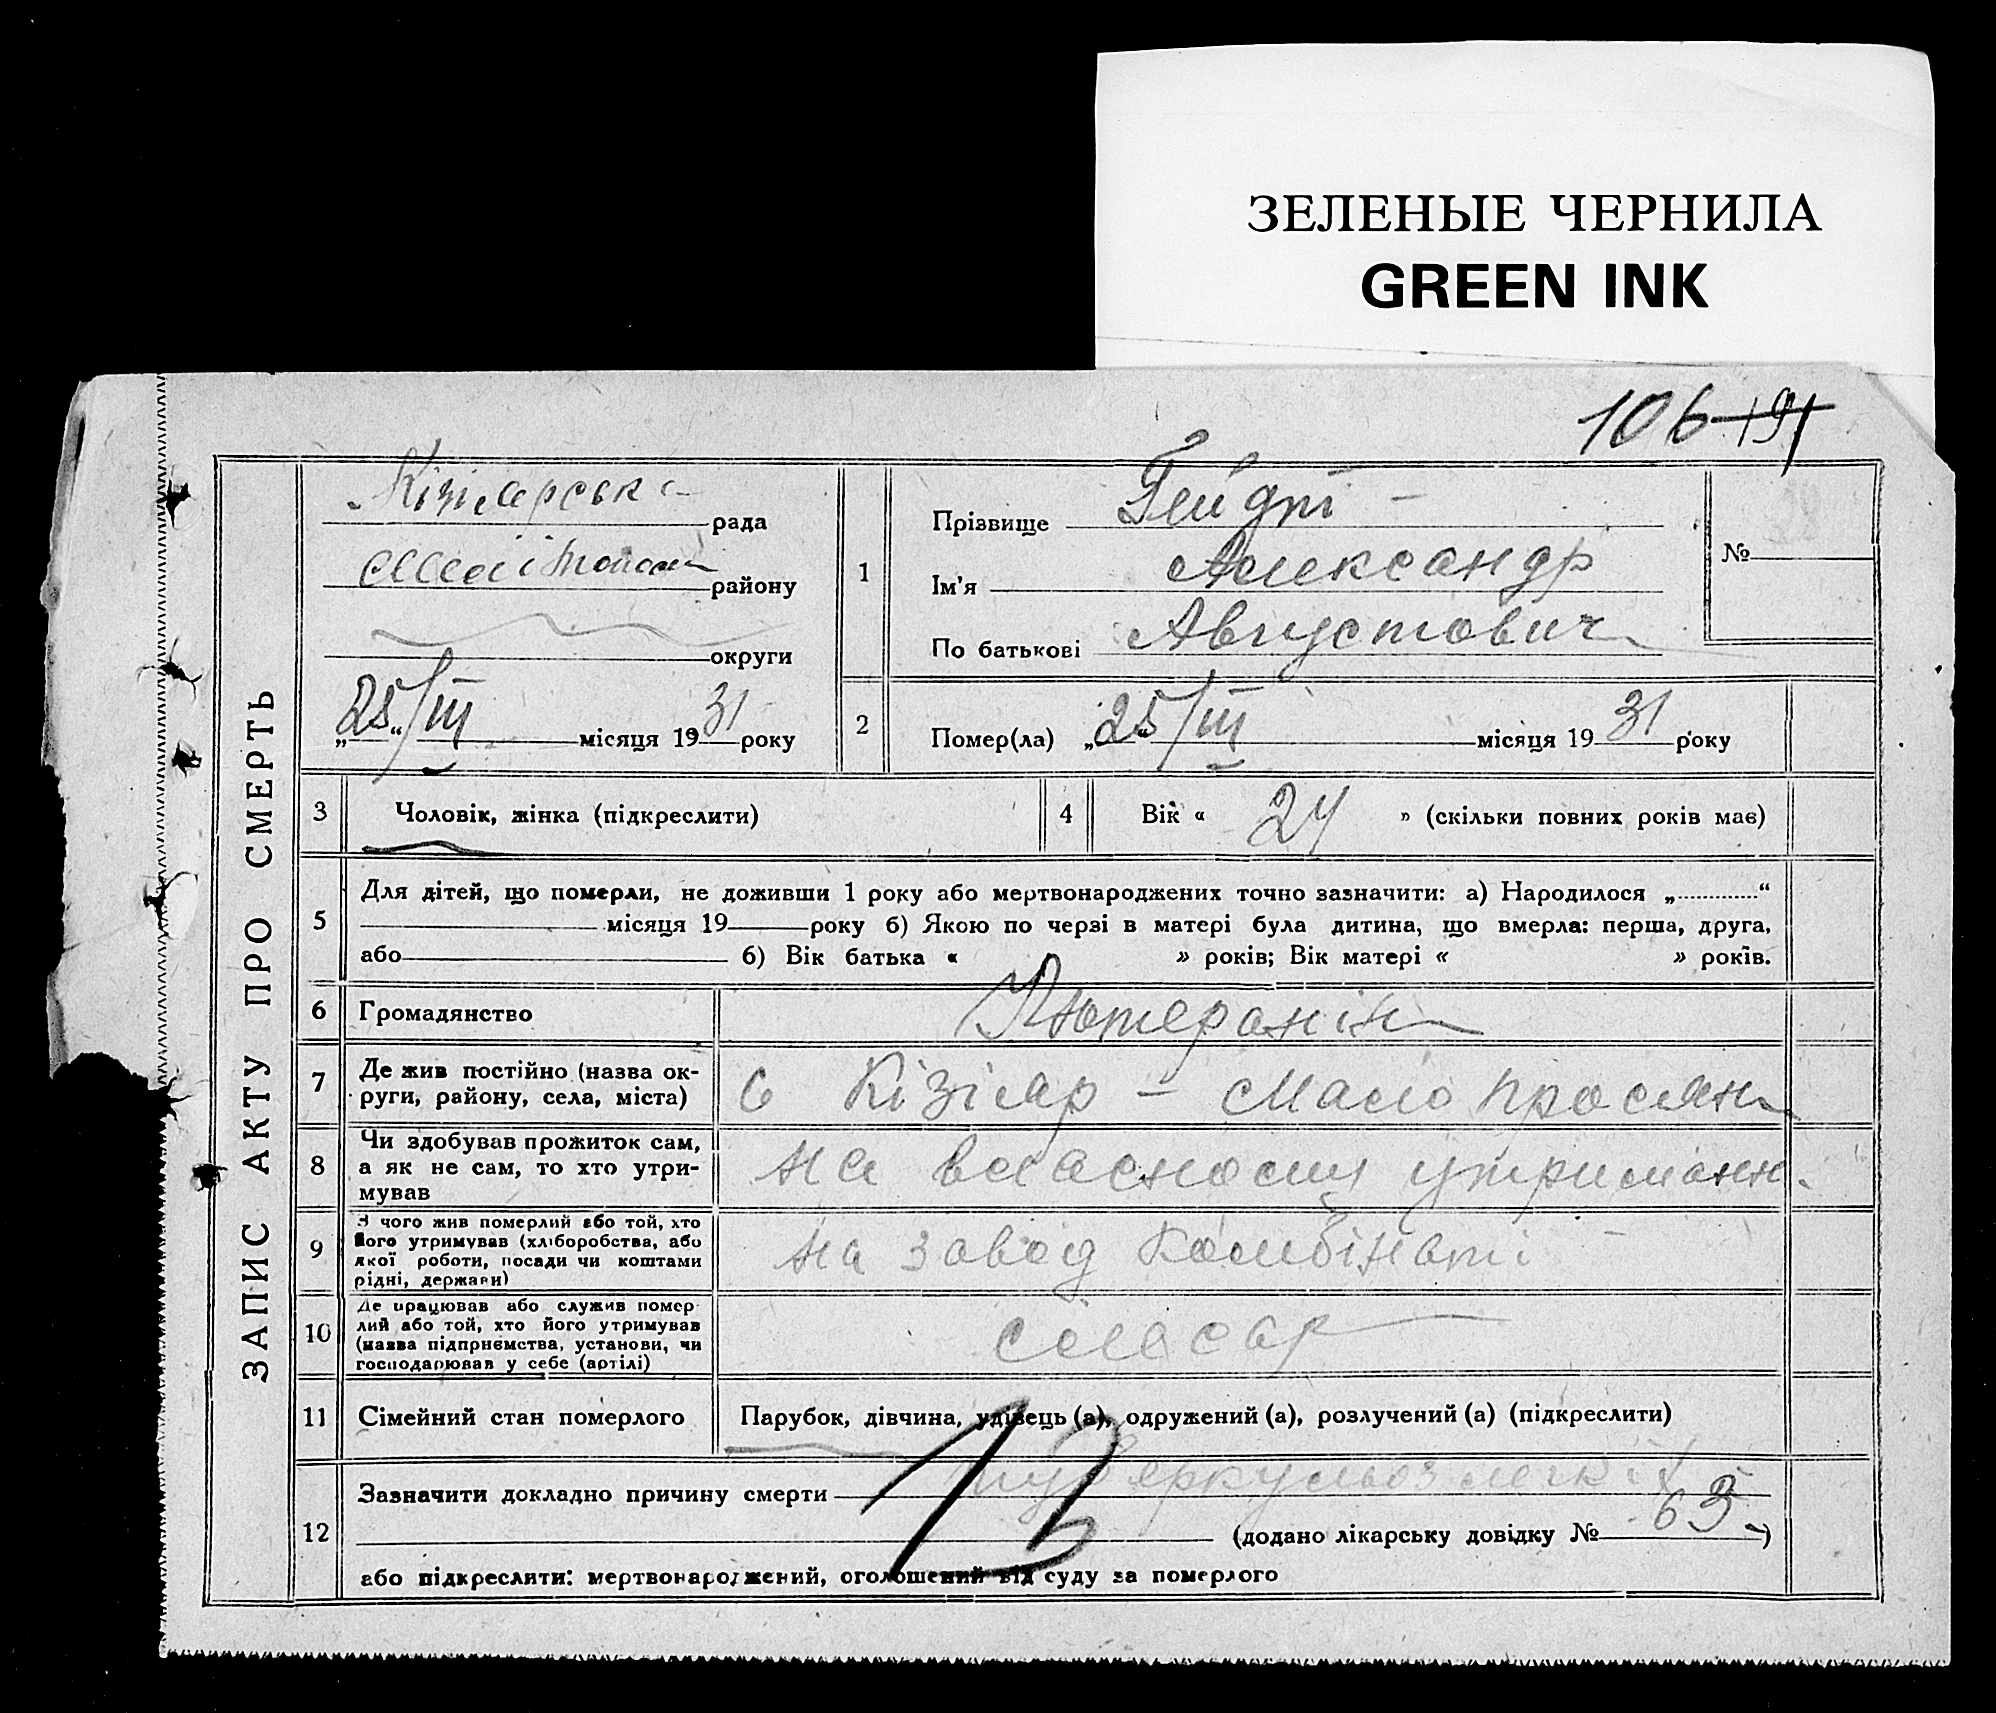 ЗЕЛЕНЫЕ ЧЕРНИЛА
GREEN INK
106 191
ЗАПИС АКТУ ПРО СМЕРТЬ
Кізіярська рада
району
округи
„25“/III місяця 1931 року
1
Прізвище Гейдт
Ім'я Александр
По батькові Августович
№
2
Помер(ла) „25“/III місяця 1931 року
3 Чоловік, жінка (підкреслити)
4 Вік « 24 » (скільки повних років має)
5
Для дітей, що померли, не доживши 1 року або мертвонароджених точно зазначити: а) Народилося „ “
місяця 19 року б) Якою по черзі в матері була дитина, що вмерла: перша, друга,
або б) Вік батька « » років; Вік матері « » років.
6 Громадянство Лютеранін
7
Де жив постійно (назва ок-
руги, району, села, міста)
с Кізіяр – Мало
8
Чи здобував прожиток сам,
а як не сам, то хто утри-
мував
на власному утриманн.
9
З чого жив померлий або той, хто
його утримував (хліборобства, або
якої роботи, посади чи коштами
рідні, держави)
на завод Комбінаті
10
Де працював або служив помер-
лий або той, хто його утримував
(назва підприємства, установи, чи
господарював у себе (артілі)
слєсар
11 Сімейний стан померлого Парубок, дівчина, удівець (а), одружений (а), розлучений (а) (підкреслити)
12
Зазначити докладно причину смерти туберкульоз легкіх
13
(додано лікарську довідку № 63)
або підкреслити: мертвонароджений, оголошений від суду за померлого